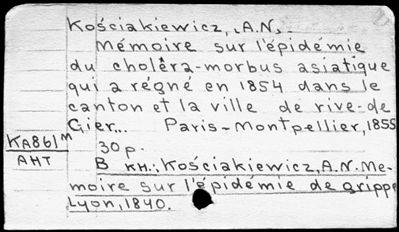 Kościakiewicz, A.N.
Mémoire sur l'épidémie
du choléra-morbus asiatique
qui a régné en 1854 dans le
canton et la ville de rive-de
Gier... Paris-Montpellier, 1855
30 p.
KA861m
AHT
B кн.: Kościakiewicz, A.N. Me-
moire sur l'épidémie de grippe
Lyon, 1840.